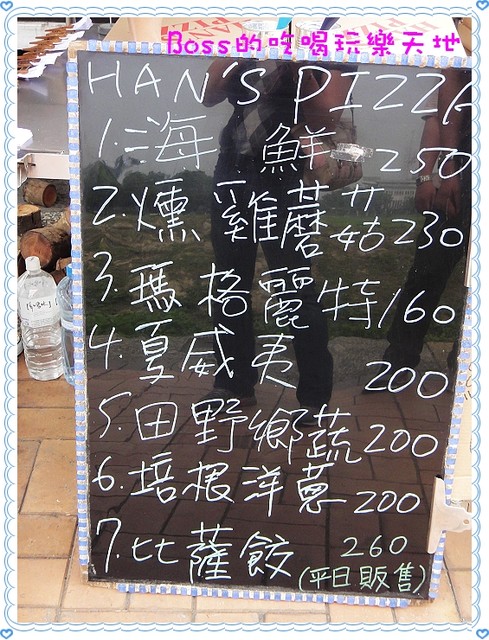 Boss的吃喝玩樂天地
HAN'S PIZZA
1.海鮮 250
2.燻雞蘑菇230
3.瑪格麗特160
4.夏威夷 200
5.田野鄉蔬200
6.培根洋蔥200
7.比薩餃 260
(平日販售)